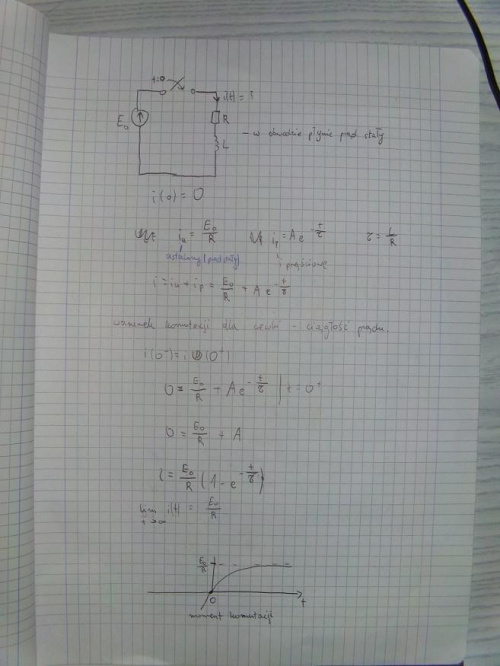 t=0
i(t) = ?
E₀
R
L
- w obwodzie płynie prąd stały
i(0) = 0
i_u = E₀/R    i_p = A e^(-t/τ)    τ = L/R
ustalony (
i przejściowy
i = i_u + i_p = E₀/R + A e^(-t/τ)
warunek komutacji dla cewki - ciągłość prądu
i(0⁻) = i(0⁺)
0 = E₀/R + A e^(-t/τ) | t = 0⁺
0 = E₀/R + A
i = E₀/R (1 - e^(-t/τ))
lim i(t) = E₀/R
t→∞
E₀/R
0
t
moment komutacji